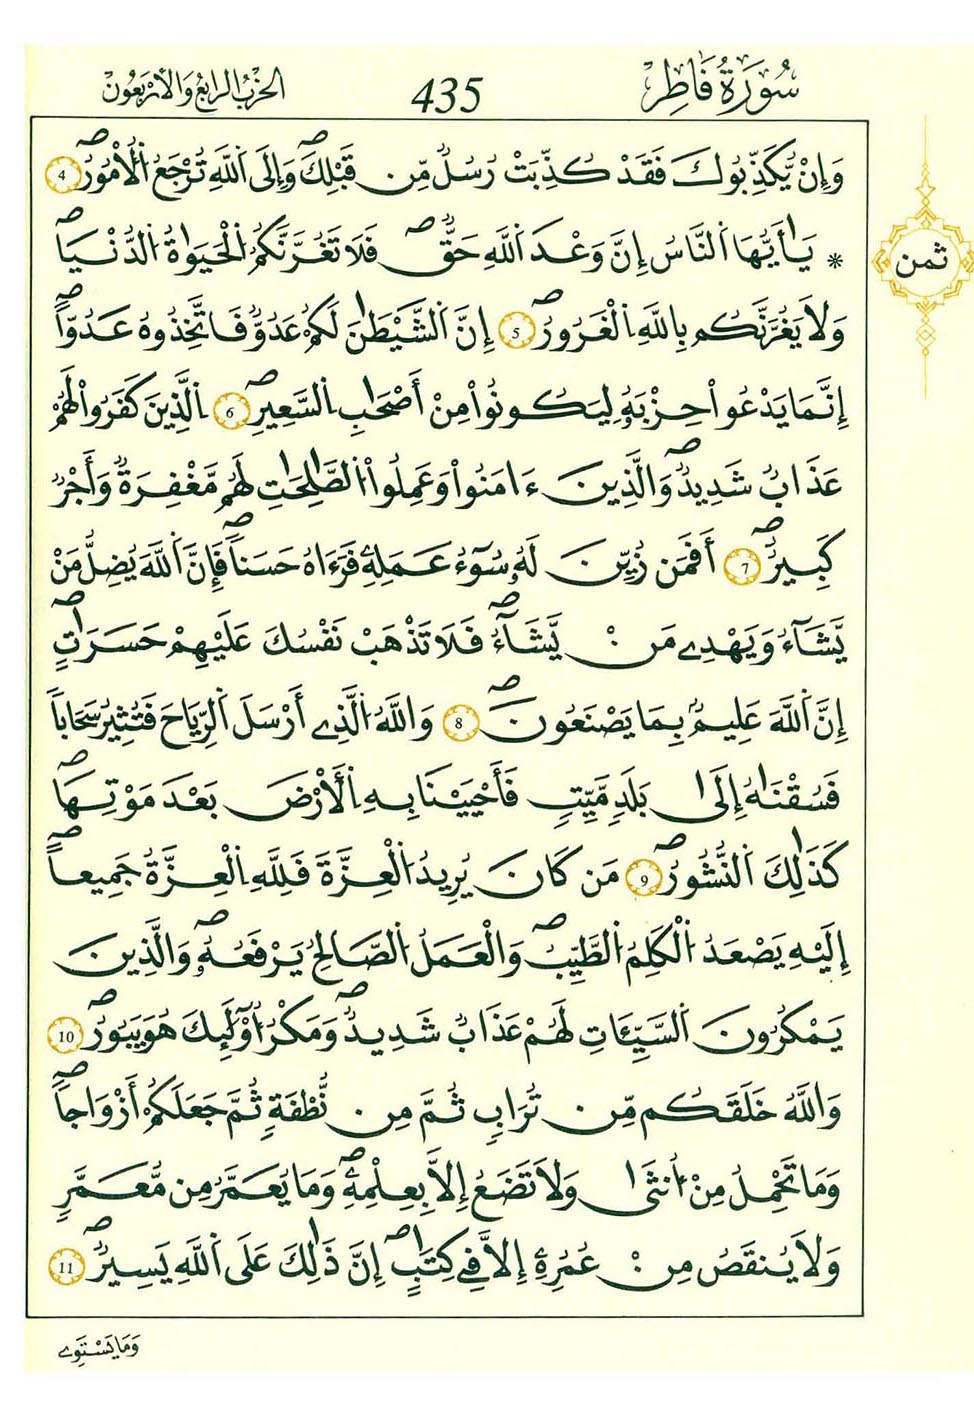 سُورَةُ فَاطِرٍ 435 الحِزْبُ الرَّابِعُ وَالْأَرْبَعُونَ
وَإِنْ يُّكَذِّبُوكَ فَقَدْ كُذِّبَتْ رُسُلٌ مِّن قَبْلِكَۖ وَإِلَى اَ۬للَّهِ تُرْجَعُ اُ۬لْأُمُورُۖ 4
* يَٰأَيُّهَا اَ۬لنَّاسُ إِنَّ وَعْدَ اَ۬للَّهِ حَقّٞۖ فَلَا تَغُرَّنَّكُمُ اُ۬لْحَيَوٰةُ اُ۬لدُّنْيَاۖ
ثمن
وَلَا يَغُرَّنَّكُم بِاللَّهِ اِ۬لْغَرُورُۖ 5 إِنَّ اَ۬لشَّيْطَٰنَ لَكُمْ عَدُوّٞ فَاتَّخِذُوهُ عَدُوّاًۖ
إِنَّمَا يَدْعُواْ حِزْبَهُۥ لِيَكُونُواْ مِنْ أَصْحَٰبِ اِ۬لسَّعِيرِۖ 6 اِ۬لَّذِينَ كَفَرُواْ لَهُمْ
عَذَابٞ شَدِيدٞۖ وَالَّذِينَ ءَامَنُواْ وَعَمِلُواْ اُ۬لصَّٰلِحَٰتِ لَهُم مَّغْفِرَةٞ وَأَجْرٞ
كَبِيرٌۖ 7 أَفَمَن زُيِّنَ لَهُۥ سُوٓءُ عَمَلِهِۦ فَرَءَاهُ حَسَناٗۖ فَإِنَّ اَ۬للَّهَ يُضِلُّ مَنْ
يَّشَآءُ وَيَهْدِے مَنْ يَّشَآءُۖ فَلَا تَذْهَبْ نَفْسُكَ عَلَيْهِمْ حَسَرَٰتٍۖ
إِنَّ اَ۬للَّهَ عَلِيمُۢ بِمَا يَصْنَعُونَۖ 8 وَاللَّهُ اُ۬لَّذِے أَرْسَلَ اَ۬لرِّيَاحَ فَتُثِيرُ سَحَاباٗ
فَسُقْنَٰهُ إِلَىٰ بَلَدٖ مَّيِّتٖ فَأَحْيَيْنَا بِهِ اِ۬لْأَرْضَ بَعْدَ مَوْتِهَاۖ
كَذَٰلِكَ اَ۬لنُّشُورُۖ 9 مَن كَانَ يُرِيدُ اُ۬لْعِزَّةَ فَلِلَّهِ اِ۬لْعِزَّةُ جَمِيعاًۖ
إِلَيْهِ يَصْعَدُ اُ۬لْكَلِمُ اُ۬لطَّيِّبُۖ وَالْعَمَلُ اُ۬لصَّٰلِحُ يَرْفَعُهُۥۖ وَالَّذِينَ
يَمْكُرُونَ اَ۬لسَّيِّـَٔاتِ لَهُمْ عَذَابٞ شَدِيدٞۖ وَمَكْرُ أُوْلَٰٓئِكَ هُوَ يَبُورُۖ 10
وَاللَّهُ خَلَقَكُم مِّن تُرَابٖ ثُمَّ مِن نُّطْفَةٖ ثُمَّ جَعَلَكُمْ أَزْوَاجاٗۖ
وَمَا تَحْمِلُ مِنْ أُنثَىٰ وَلَا تَضَعُ إِلَّا بِعِلْمِهِۦۖ وَمَا يُعَمَّرُ مِن مُّعَمَّرٖ
وَلَا يُنقَصُ مِنْ عُمُرِهِۦٓ إِلَّا فِے كِتَٰبٍۖ إِنَّ ذَٰلِكَ عَلَى اَ۬للَّهِ يَسِيرٞۖ 11
وَمَا يَسْتَوِے